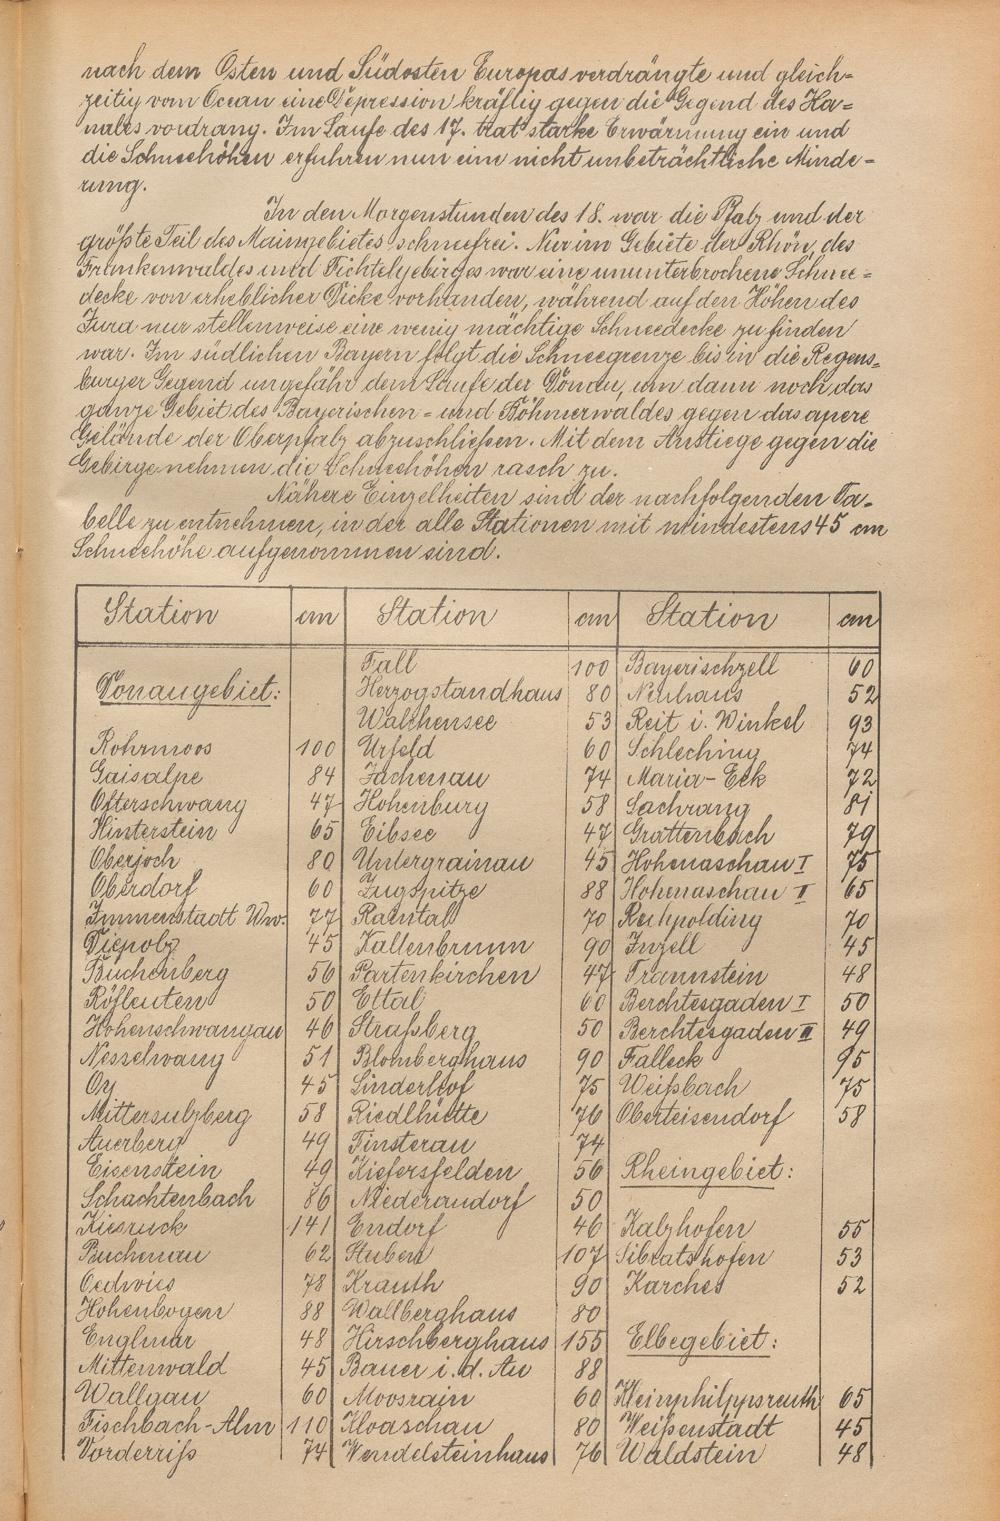 nach dem Osten und Südosten Europas verdrängte und gleich=
zeitig vom Ocean eine Depression kräftig gegen die Gegend des Ka=
nales vordrang. Im Laufe des 17. trat starke Erwärmung ein und
die Schneehöhen erfuhren nun eine nicht unbeträchtliche Minde=
rung.
In den Morgenstunden des 18. war die Pfalz und der
größte Teil des Maingebietes schneefrei. Nur im Gebiete der Rhön, des
Frankenwaldes und Fichtelgebirges war eine ununterbrochene Schnee=
decke von erheblicher Dicke vorhanden, während auf den Höhen des
Jura nur stellenweise eine wenig mächtige Schneedecke zu finden
war. Im südlichen Bayern folgt die Schneegrenze bis in die Regens=
burger Gegend ungefähr dem Laufe der Donau, um dann noch das
ganze Gebiet des Bayerischen= und Böhmerwaldes gegen das apere
Gelände der Oberpfalz abzuschließen. Mit dem Anstiege gegen die
Gebirge nehmen die Schneehöhen rasch zu.
Nähere Einzelheiten sind der nachfolgenden Ta=
belle zu entnehmen, in der alle Stationen mit mindestens 45 cm
Schneehöhe aufgenommen sind.
Station cm Station cm Station cm
Donaugebiet:
Rohrmoos 100
Gaisalpe 84
Ofterschwang 47
Hinterstein 65
Oberjoch 80
Oberdorf 60
Immenstadt Ww. 77
Diepolz 45
Buchenberg 56
Röfleuten 50
Hohenschwangau 46
Nesselwang 51
Oy 45
Mittersulzberg 58
Auerberg 49
Eisenstein 49
Schachtenbach 86
Kiesruck 141
Buchenau 62
Oedwies 78
Hohenbogen 88
Englmar 48
Mittenwald 45
Wallgau 60
Fischbach-Alm 110
Vorderriß 74
Fall 100
Herzogstandhaus 80
Walchensee 53
Urfeld 60
Jachenau 74
Hohenburg 58
Eibsee 47
Untergrainau 45
Zugspitze 88
Raintal 70
Kaltenbrunn 90
Partenkirchen 47
Ettal 60
Straßberg 50
Blomberghaus 90
Linderhof 75
Riedlhütte 76
Finsterau 74
Kiefersfelden 56
Niederaudorf 50
Endorf 46
Stuben 107
Kreuth 90
Wallberghaus 80
Hirschberghaus 155
Bauer i. d. Au 88
Moosrain 60
Kloaschau 80
Wendelsteinhaus 76
Bayerischzell 60
Neuhaus 52
Reit i. Winkel 93
Schleching 74
Maria-Eck 72
Sachrang 81
Grattenbach 79
Hohenaschau I 75
Hohenaschau II 65
Ruhpolding 70
Inzell 45
Traunstein 48
Berchtesgaden I 50
Berchtesgaden II 49
Falleck 95
Weißbach 75
Oberteisendorf 58
Rheingebiet:
Kalzhofen 55
Sibratshofen 53
Karches 52
Elbegebiet:
Kleinphilippsreuth 65
Weißenstadt 45
Waldstein 48